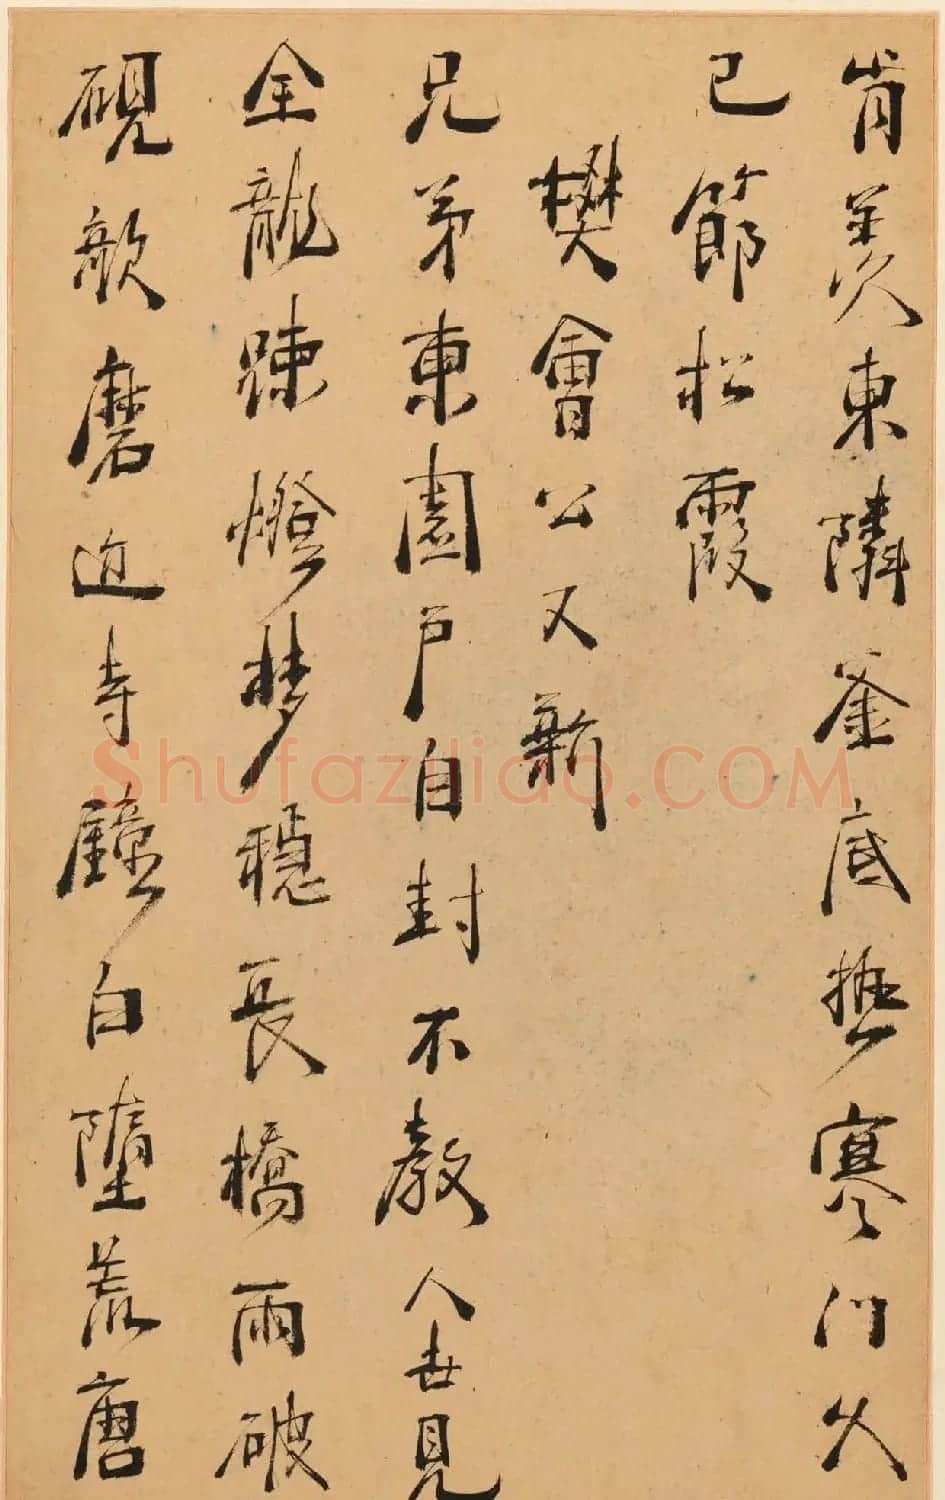 肯羨東隣釜底熱寒門久
已節松霞
樊會公又新
兄弟東園戶自封不教人世見
全龍踈燈梦穩長橋雨破
硯歌磨近寺鐘白墮荒唐
Shufaziliao.COM